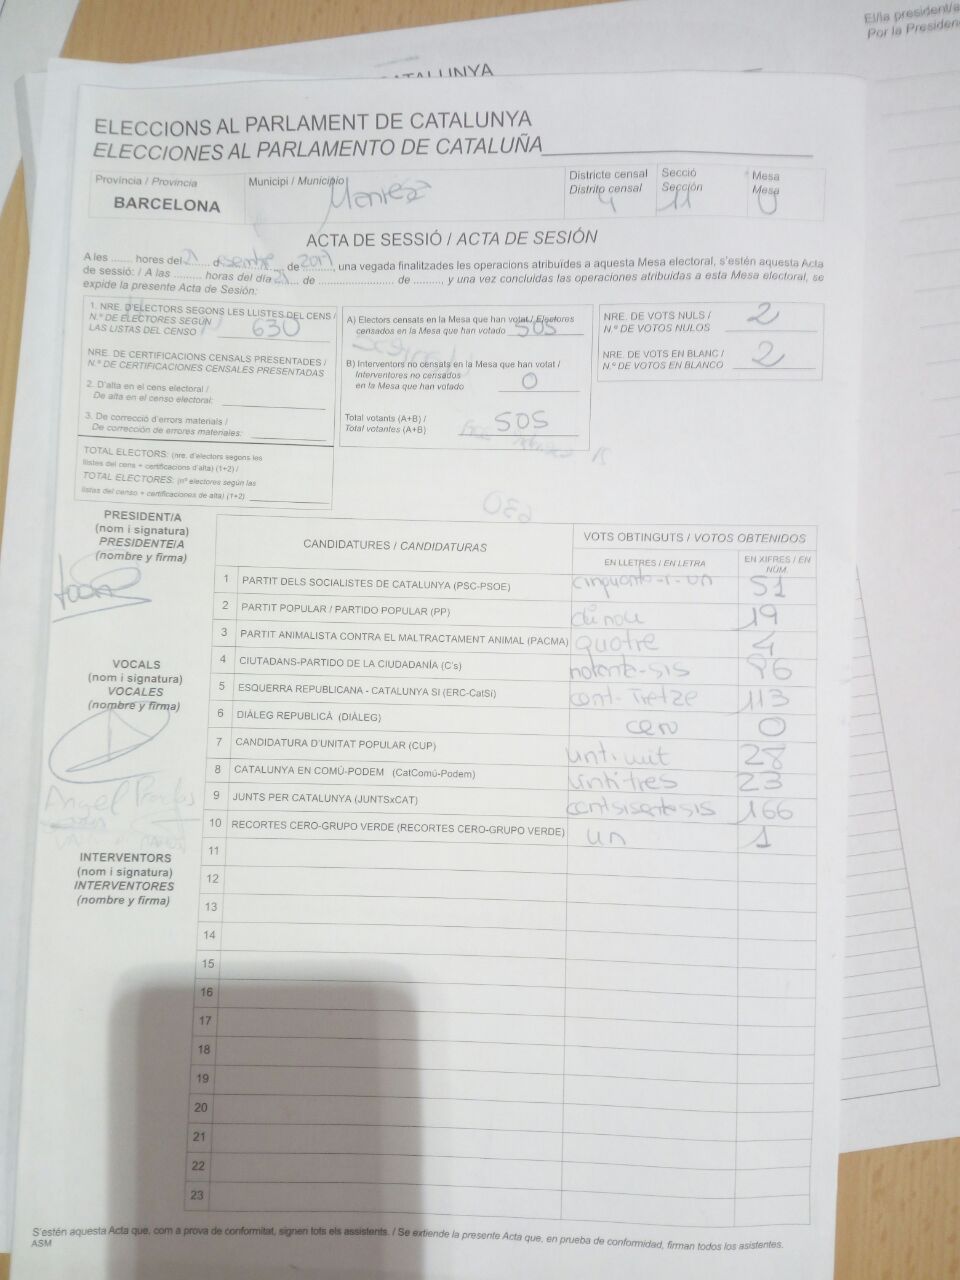 El/la president/a
Por la Presiden
CATALUNYA
ELECCIONS AL PARLAMENT DE CATALUNYA
ELECCIONES AL PARLAMENTO DE CATALUÑA
Província / Provincia
BARCELONA
Municipi / Municipio
Districte censal
Distrito censal
4
Secció
Sección
11
Mesa
Mesa
U
ACTA DE SESSIÓ / ACTA DE SESIÓN
A les ....... hores del 21 de desembre de 2017, una vegada finalitzades les operacions atribuïdes a aquesta Mesa electoral, s'estén aquesta Acta
de sessió: / A las ......... horas del día 21 de ........................ de ........., y una vez concluidas las operaciones atribuidas a esta Mesa electoral, se
expide la presente Acta de Sesión:
1. NRE. D'ELECTORS SEGONS LES LLISTES DEL CENS /
N.º DE ELECTORES SEGÚN
LAS LISTAS DEL CENSO 630
NRE. DE CERTIFICACIONS CENSALS PRESENTADES /
N.º DE CERTIFICACIONES CENSALES PRESENTADAS
2. D'alta en el cens electoral /
De alta en el censo electoral:
3. De correcció d'errors materials /
De corrección de errores materiales:
TOTAL ELECTORS: (nre. d'electors segons les
llistes del cens + certificacions d'alta) (1+2) /
TOTAL ELECTORES: (nº electores según las
listas del censo + certificaciones de alta) (1+2)
A) Electors censats en la Mesa que han votat / Electores
censados en la Mesa que han votado 505
B) Interventors no censats en la Mesa que han votat /
Interventores no censados
en la Mesa que han votado 0
Total votants (A+B) /
Total votantes (A+B) 505
NRE. DE VOTS NULS /
N.º DE VOTOS NULOS 2
NRE. DE VOTS EN BLANC /
N.º DE VOTOS EN BLANCO 2
630
PRESIDENT/A
(nom i signatura)
PRESIDENTE/A
(nombre y firma)
VOCALS
(nom i signatura)
VOCALES
(nombre y firma)
Angel
INTERVENTORS
(nom i signatura)
INTERVENTORES
(nombre y firma)
CANDIDATURES / CANDIDATURAS
VOTS OBTINGUTS / VOTOS OBTENIDOS
EN LLETRES / EN LETRA
EN XIFRES / EN NÚM.
1 PARTIT DELS SOCIALISTES DE CATALUNYA (PSC-PSOE) cinquanta-i-un 51
2 PARTIT POPULAR / PARTIDO POPULAR (PP) dinou 19
3 PARTIT ANIMALISTA CONTRA EL MALTRACTAMENT ANIMAL (PACMA) quatre 4
4 CIUTADANS-PARTIDO DE LA CIUDADANÍA (C's) notanta-sis 96
5 ESQUERRA REPUBLICANA - CATALUNYA SI (ERC-CatSí) cent-Tretze 113
6 DIÀLEG REPUBLICÀ (DIÀLEG) cero 0
7 CANDIDATURA D'UNITAT POPULAR (CUP) vint-i-uit 28
8 CATALUNYA EN COMÚ-PODEM (CatComú-Podem) vintitres 23
9 JUNTS PER CATALUNYA (JUNTSxCAT) centsisentasis 166
10 RECORTES CERO-GRUPO VERDE (RECORTES CERO-GRUPO VERDE) un 1
11
12
13
14
15
16
17
18
19
20
21
22
23
S'estén aquesta Acta que, com a prova de conformitat, signen tots els assistents. / Se extiende la presente Acta que, en prueba de conformidad, firman todos los asistentes.
ASM